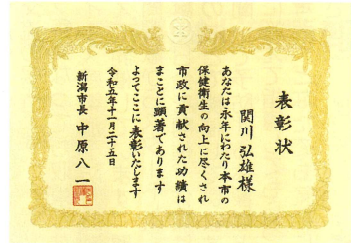 表彰状
関川弘雄様
あなたは永年にわたり本市の
保健衛生の向上に尽くされ
市政に貢献された功績は
まことに顕著であります
よってここに表彰いたします
令和五年十一月二十五日
新潟市長 中原八一